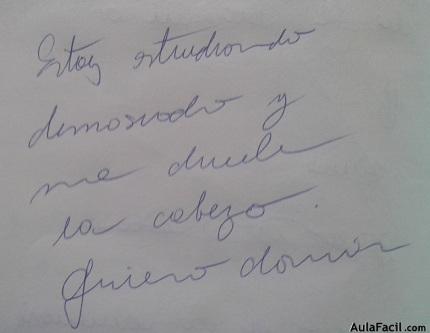 Estoy estudiando
demasiado y
me duele
la cabeza.
Quiero dormir
AulaFacil.com